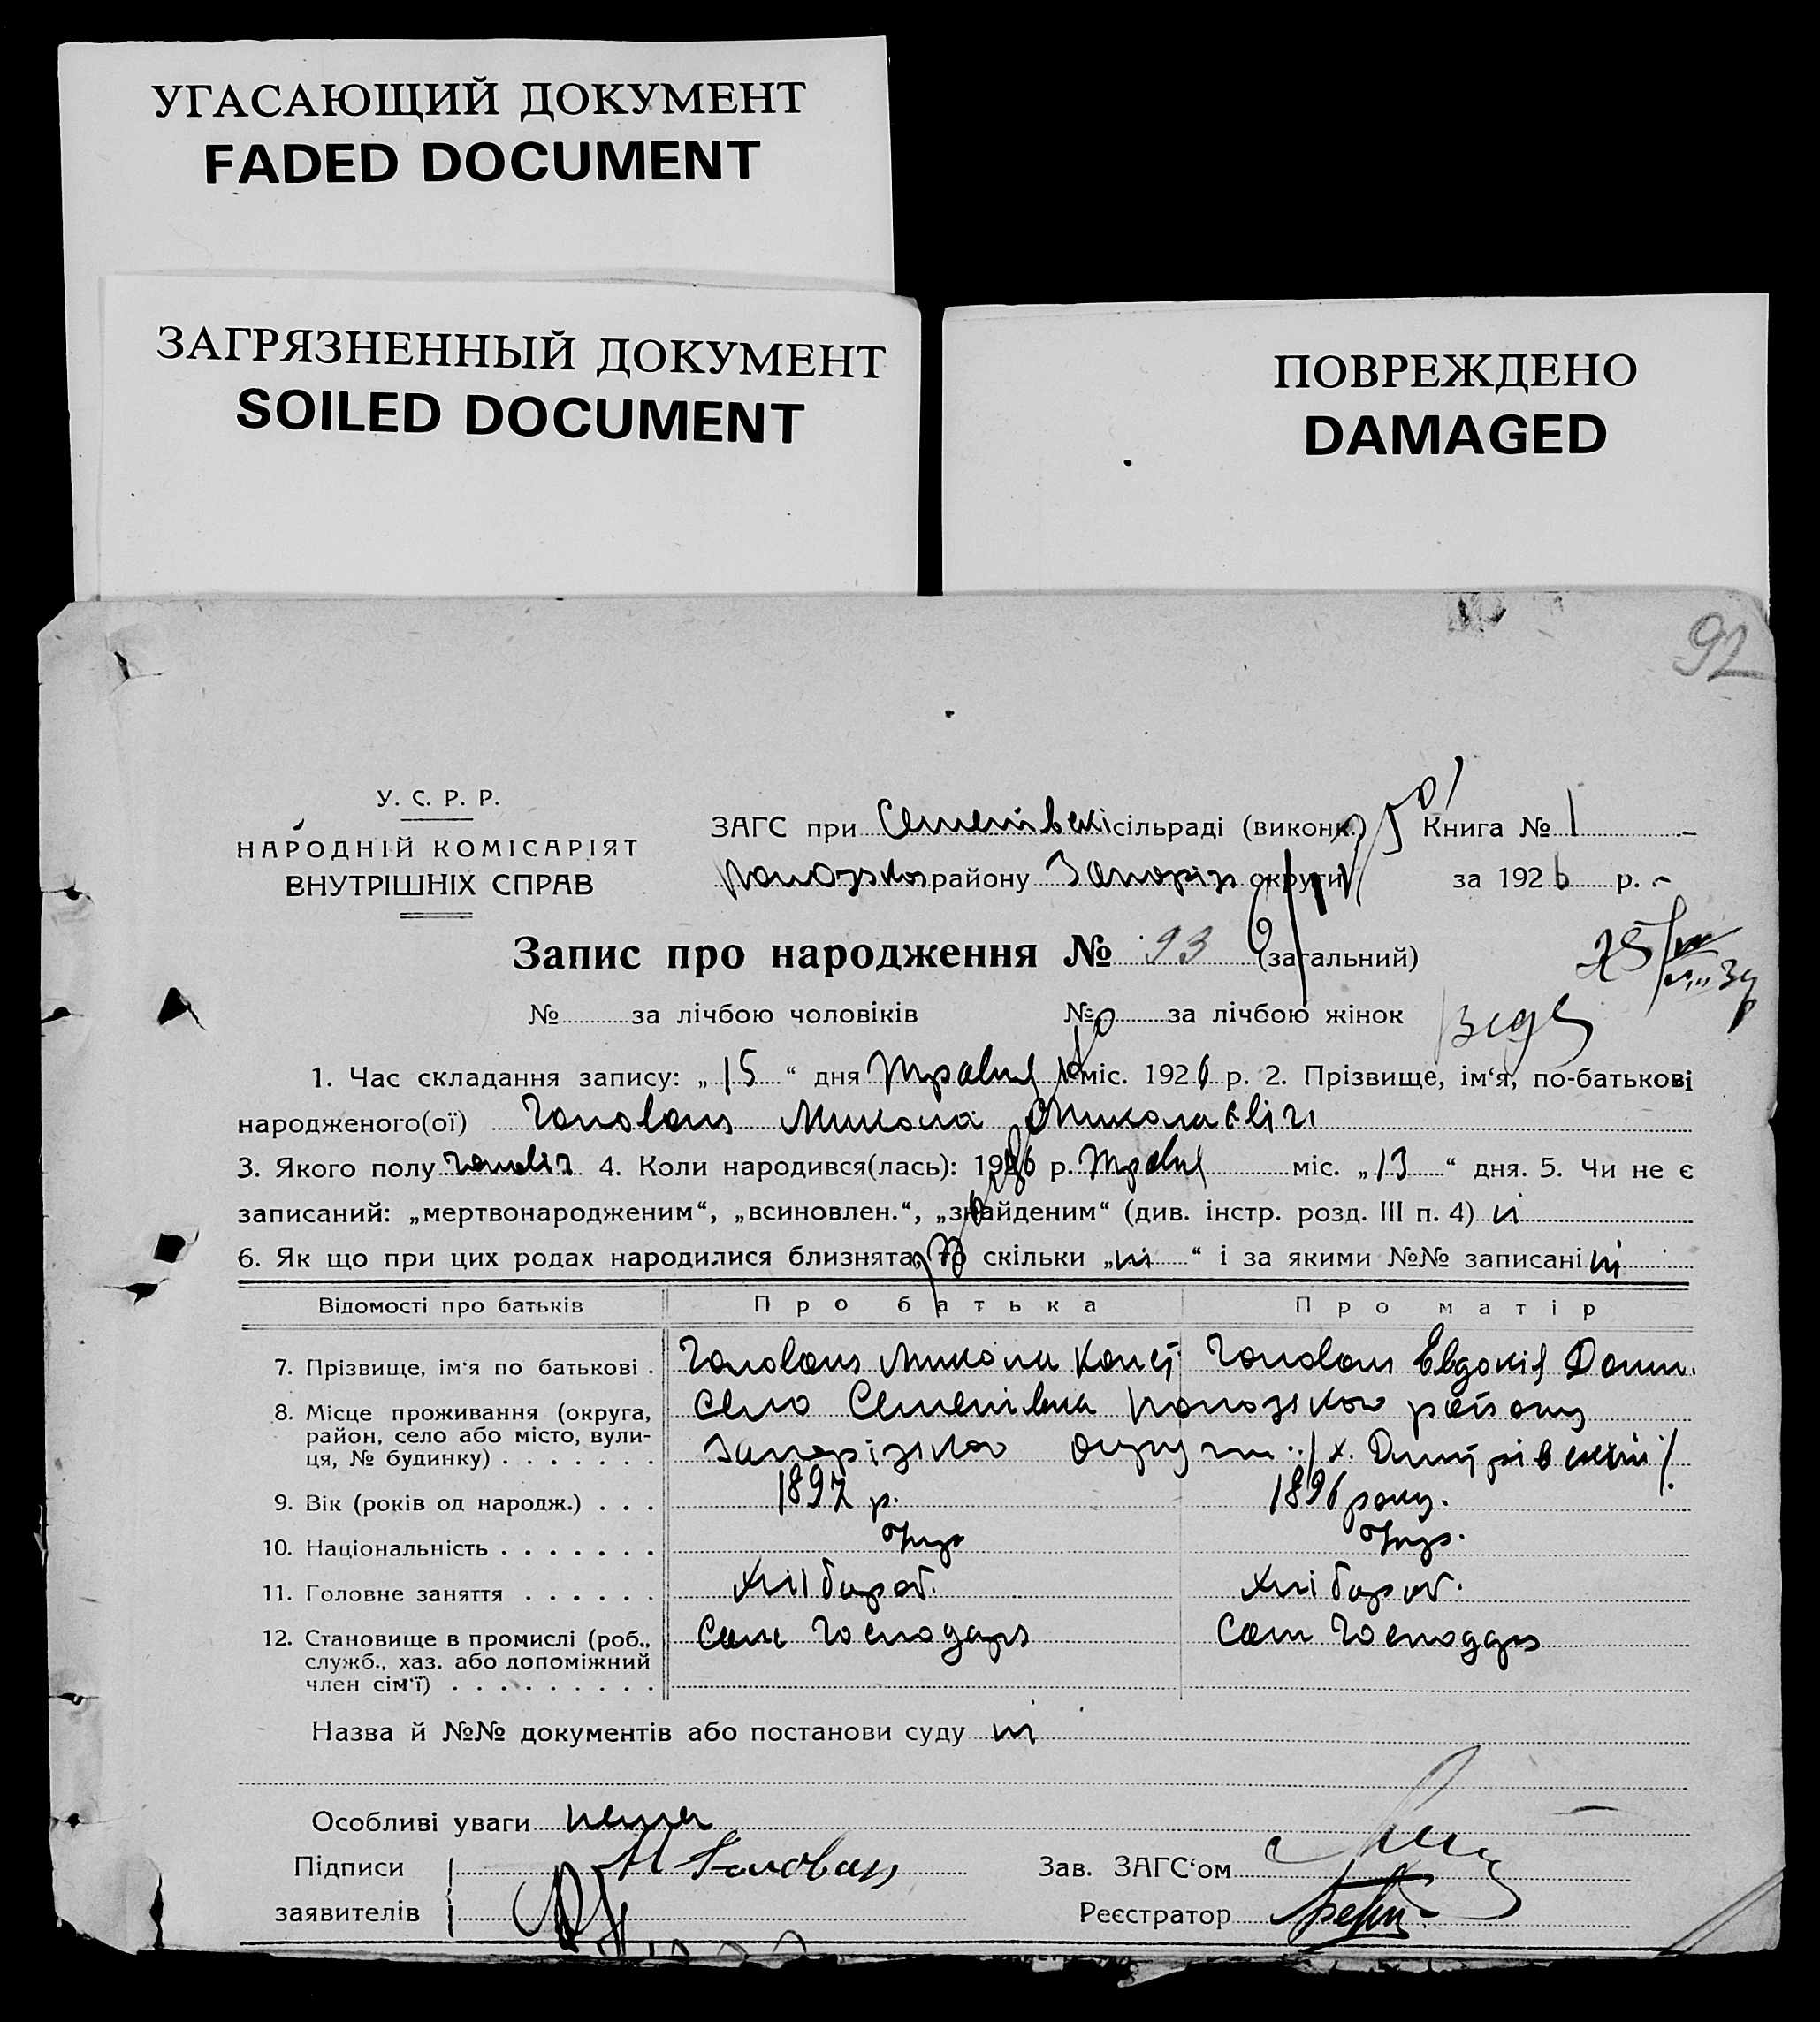 УГАСАЮЩИЙ ДОКУМЕНТ
FADED DOCUMENT
ЗАГРЯЗНЕННЫЙ ДОКУМЕНТ
SOILED DOCUMENT
ПОВРЕЖДЕНО
DAMAGED
92
У. С. Р. Р.
НАРОДНІЙ КОМІСАРІЯТ
ВНУТРІШНІХ СПРАВ
ЗАГС при Семенівскі сільраді (виконк.) Книга № 1
району Запоріз округи за 1926 р.
Запис про народження № 93 (загальний)
№ за лічбою чоловіків № за лічбою жінок
1. Час складання запису: „15“ дня Травня міс. 1926 р. 2. Прізвище, ім‘я, по-батькові
народженого(ої) Головань Микола Миколаєвіч
3. Якого полу чоловіч 4. Коли народився(лась): 1926 р. Травня міс. „13“ дня. 5. Чи не є
записаний: „мертвонародженим“, „всиновлен.“, „знайденим“ (див. інстр. розд. III п. 4) ні
6. Як що при цих родах народилися близнята, то скільки „ні“ і за якими №№ записані ні
Відомості про батьків Про батька Про матір
7. Прізвище, ім‘я по батькові . Головань Микола Конст. Головань Евдокія Данил.
8. Місце проживання (округа, район, село або місто, вулиця, № будинку) . . . . . . . село Семенівка району
Запорізкої округи /х. Дмитрівский/
9. Вік (років од народж.) . . . 1897 р. 1896 року.
10. Національність . . . . . . . Укр Укр.
11. Головне заняття . . . . . . Хлібороб. Хлібороб.
12. Становище в промислі (роб., служб., хаз. або допоміжний член сім‘ї) . . . . . . . . . Сам Господарь Сам Господарь
Назва й №№ документів або постанови суду ні
Особливі уваги нема
Підписи М Головань Зав. ЗАГС‘ом
заявителів Реєстратор